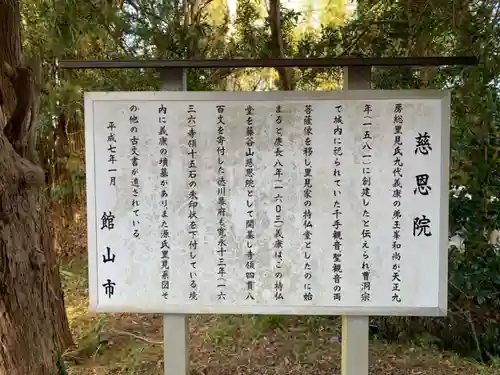 慈恩院
房総里見氏九代義康の弟玉峯和尚が天正九
年（一五八一）に創建したと伝えられ曹洞宗
で城内に祀られていた千手観音聖観音の両
菩薩像を移し里見家の持仏堂としたのに始
まると慶長八年（一六〇三）義康はこの持仏
堂を藤谷山慈恩院として開基し寺領四貫八
百文を寄付した徳川幕府も寛永十三年（一六
三六）寺領十五石の朱印状を下付している境
内に義康の墳墓がありまた源氏里見系図そ
の他の古文書が遺されている。
平成七年一月
館山市